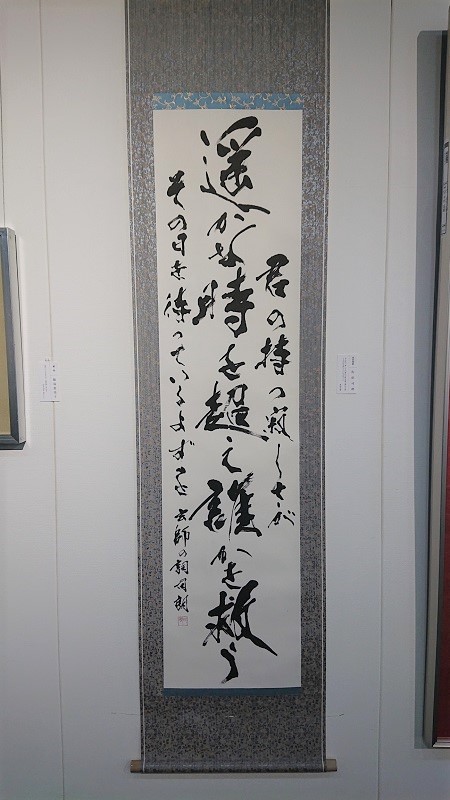 君の持つ寂しさが
遥かな時を超え誰かを救う
その日を待っているよずっと 玄師の詞